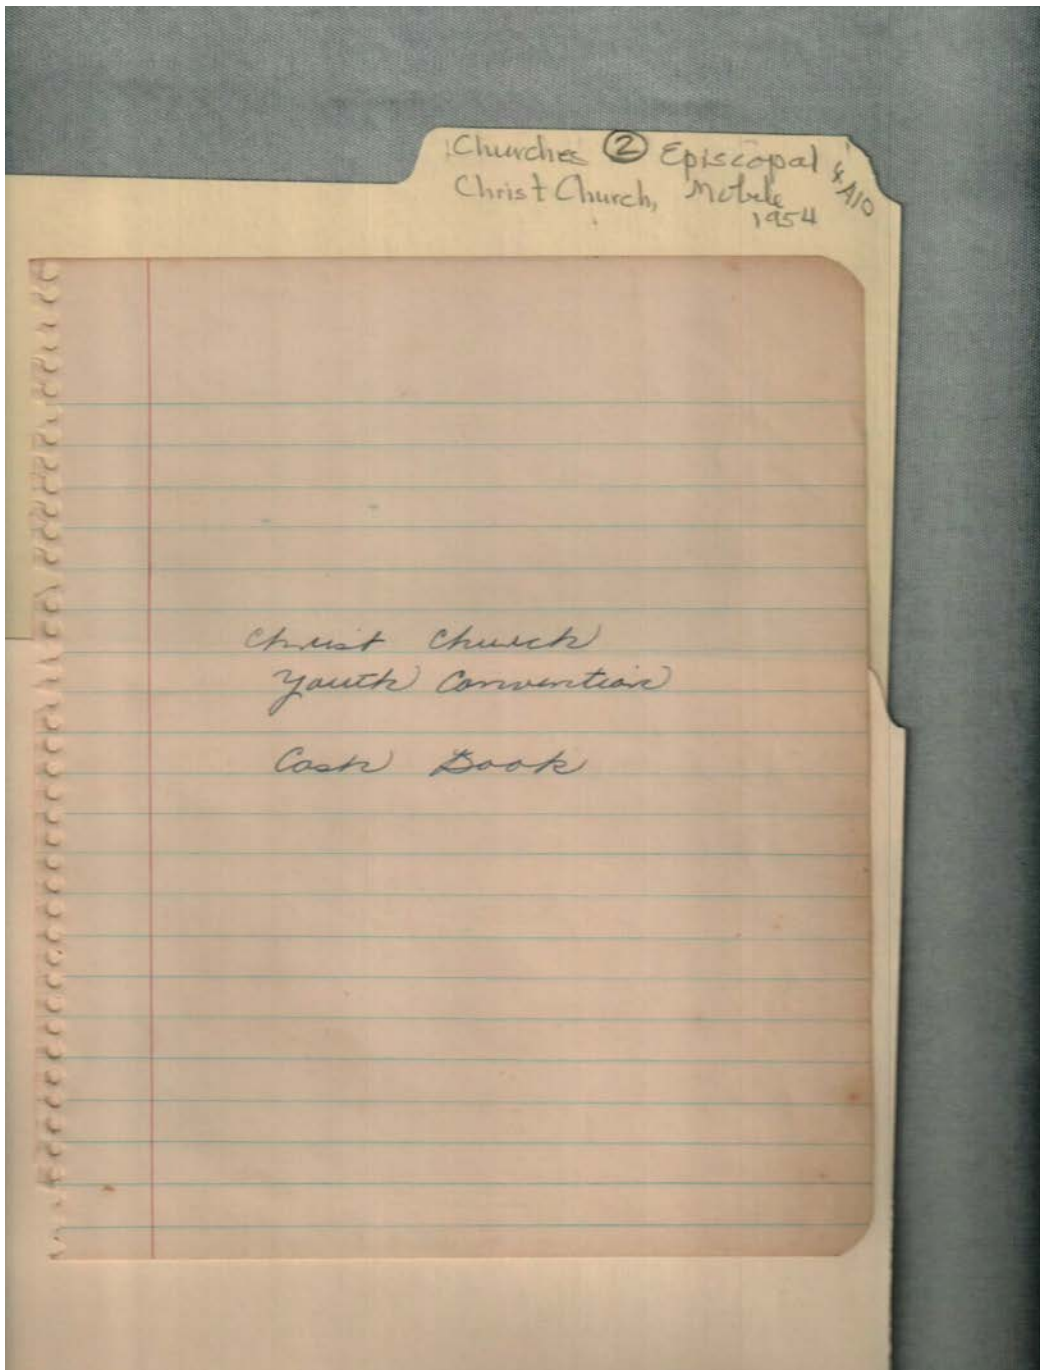 Churches ② Episcopal
Christ Church, Mobile
1954
4A10
Christ Church
Youth Convention
Cash Book